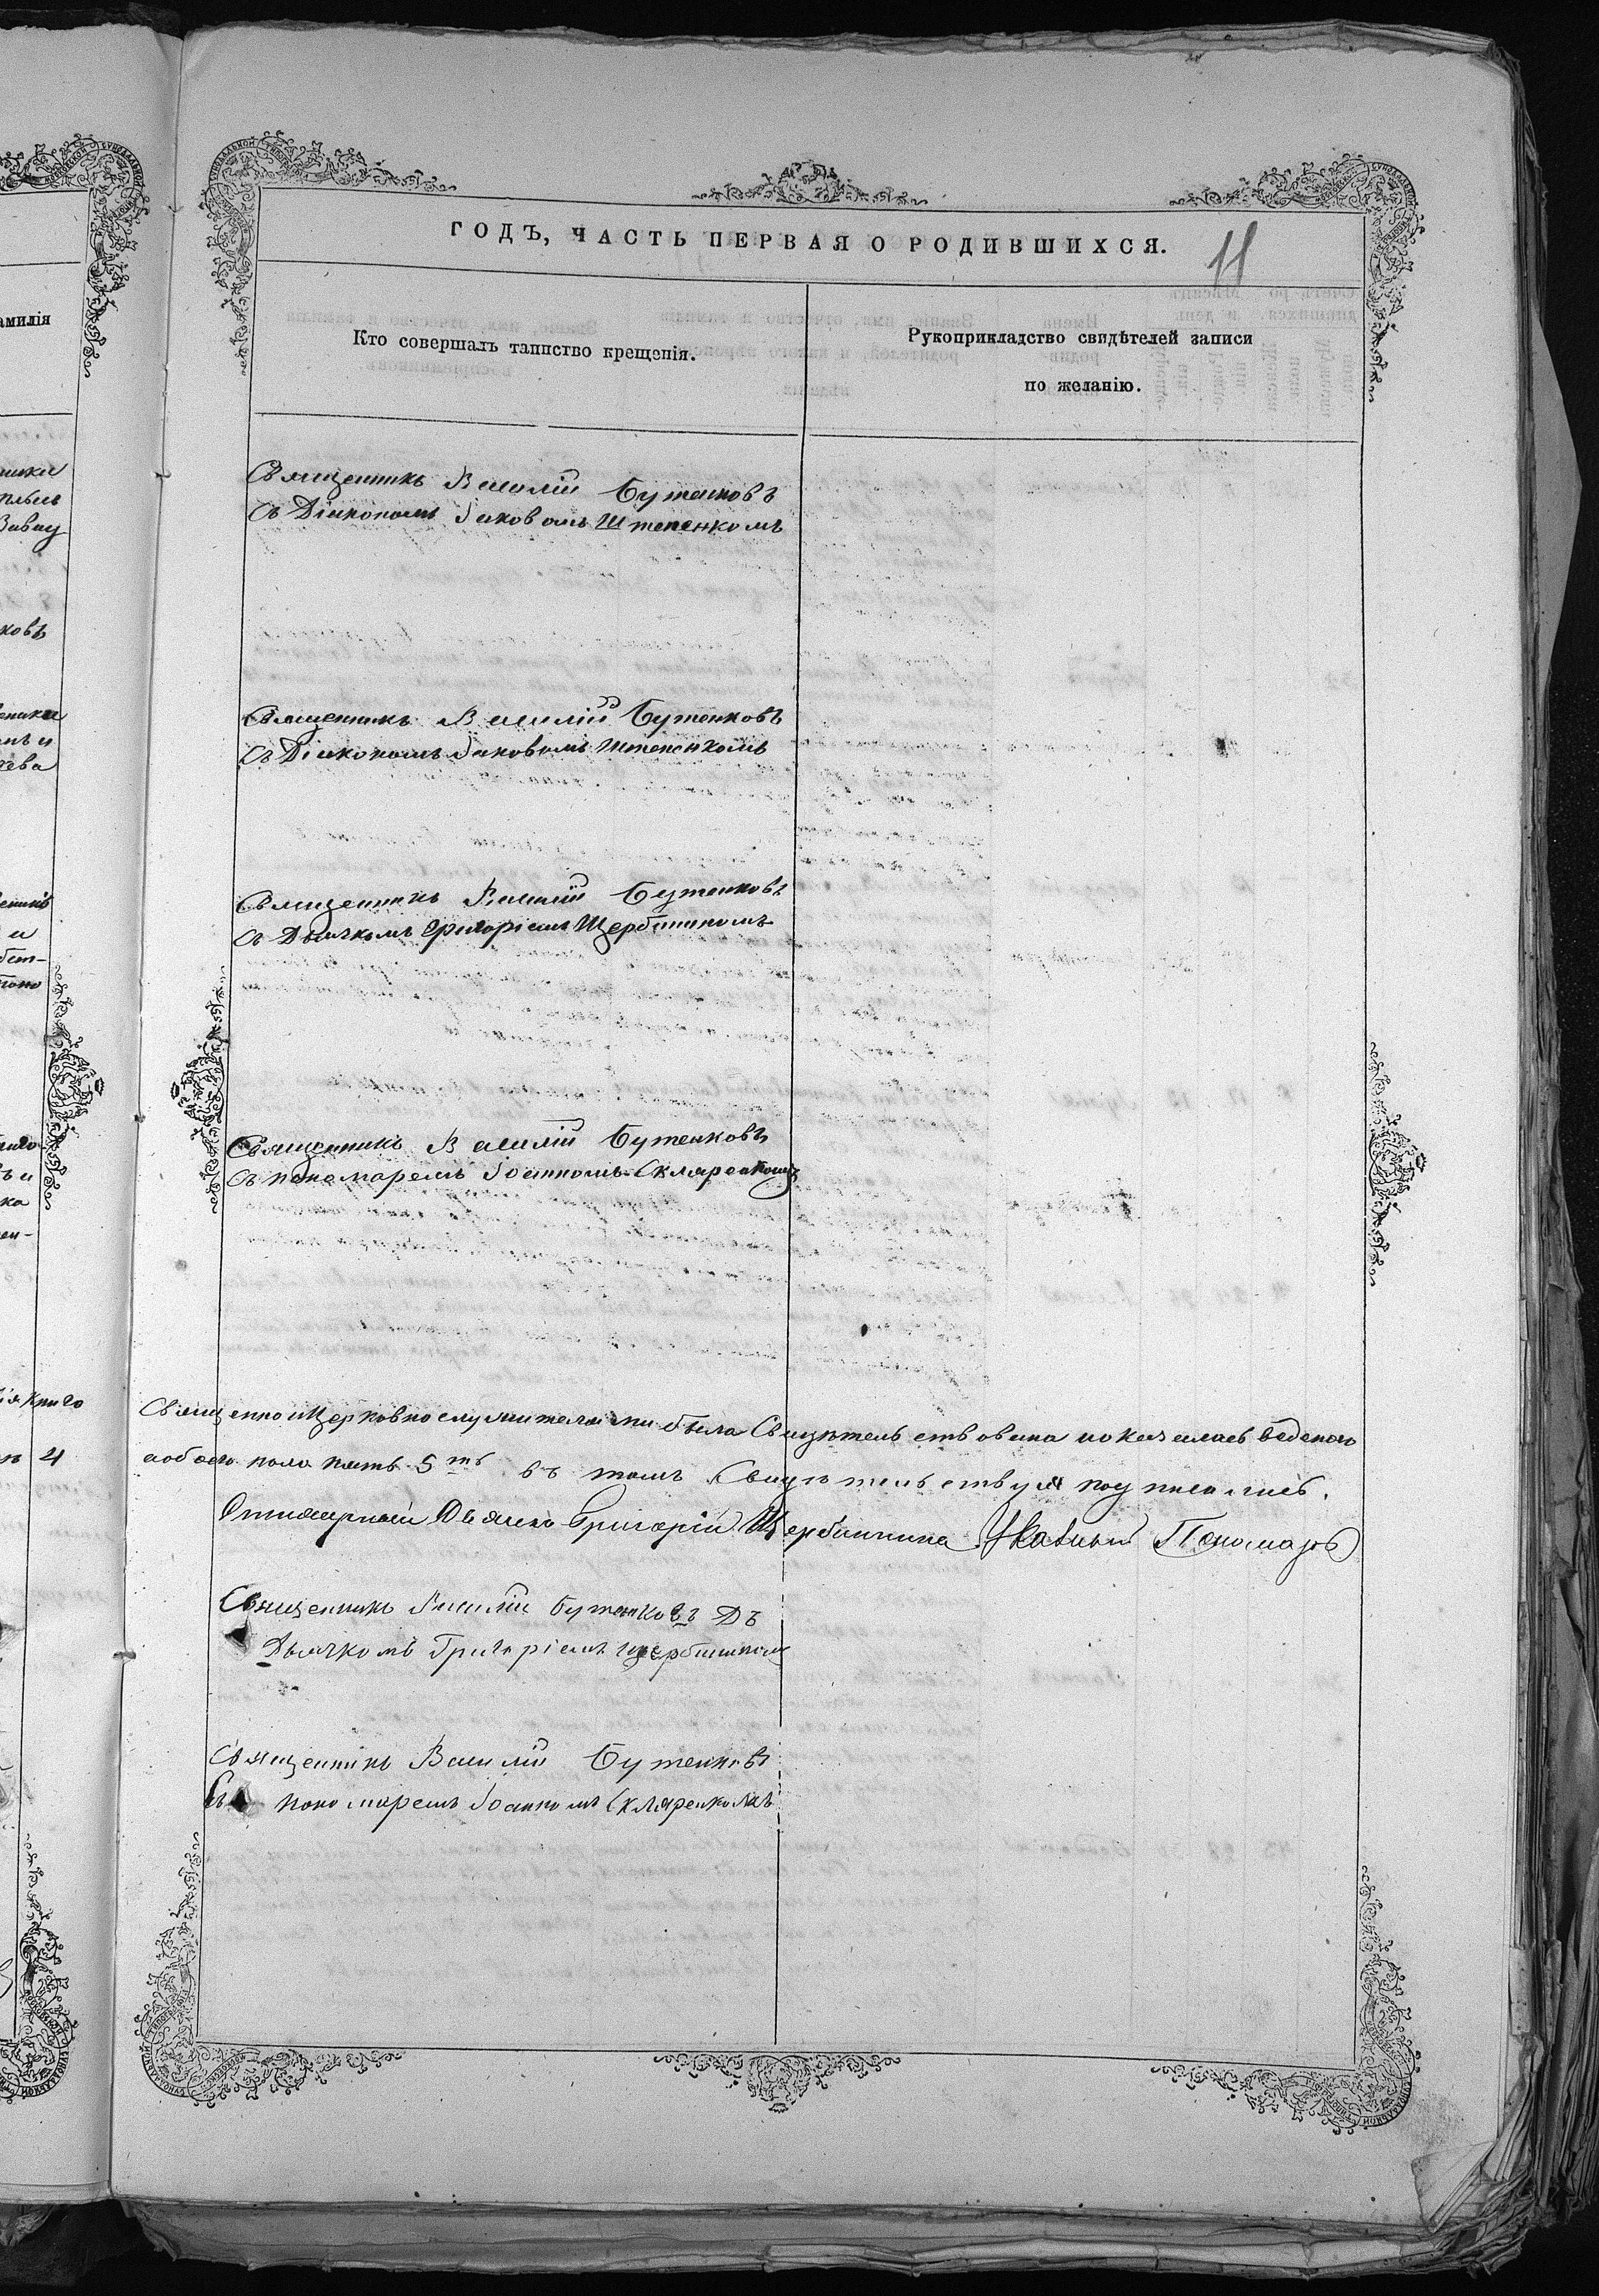 ГОДЪ, ЧАСТЬ ПЕРВАЯ О РОДИВШИХСЯ.
11
амилія
Кто совершалъ таинство крещенія.
Рукоприкладство свидѣтелей записи
по желанію.
Священникъ Василій Бутенковъ
съ Діакономъ Іаковомъ Штепенкомъ
Священникъ Василій Бутенковъ
съ Діакономъ Іаковомъ Штепенкомъ
Священникъ Василій Бутенковъ
съ Дьячкомъ Григоріемъ Щербининомъ
Священникъ Василій Бутенковъ
съ пономаремъ Іоанномъ Скляренкомъ
Священно и Церковнослужителями была Свидѣтельствована и оказалась веденою
а обоего пола пять 5ть въ томъ Свидѣтельствуя подписались.
Дьячекъ Григорій Щербинина Указный Пономарь
Священникъ Василій Бутенковъ Съ
Дьячкомъ Григоріемъ Щербининомъ
Священникъ Василій Бутенковъ
Съ пономаремъ Іоанномъ Скляренкомъ